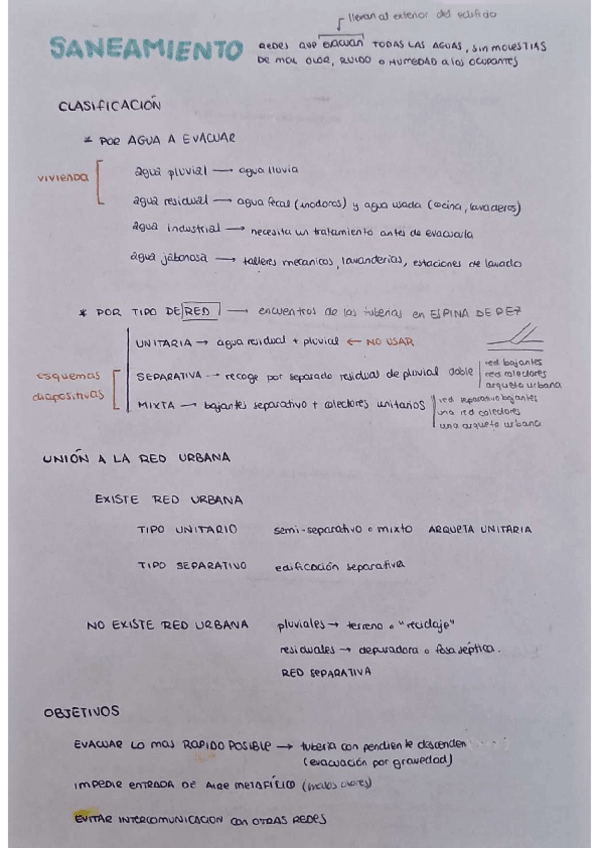 llevan al exterior del edificio
SANEAMIENTO REDES QUE EVACUAN TODAS LAS AGUAS, sin MOLESTIAS
DE MAL OLOR, RUIDO O HUMEDAD a los OCUPANTES
CLASIFICACIÓN
* POR AGUA A EVACUAR
VIVIENDA
agua pluvial → agua lluvia
agua residual → agua fecal (inodoros) y agua usada (cocina, lavaderos)
agua industrial → necesita un tratamiento antes de evacuarla
agua jabonosa → talleres mecanicos, lavanderias, estaciones de lavado
* POR TIPO DE RED → encuentros de las tuberias en ESPINA DE PEZ
UNITARIA → agua residual + pluvial ← NO USAR
esquemas
diapositivas
SEPARATIVA → recoge por separado residual de pluvial doble
red bajantes
red colectores
arqueta urbana
MIXTA → bajantes separativo + colectores unitarios
red separativo bajantes
una red colectores
una arqueta urbana
UNIÓN A LA RED URBANA
EXISTE RED URBANA
TIPO UNITARIO semi-separativo o mixto ARQUETA UNITARIA
TIPO SEPARATIVO edificación separativa
NO EXISTE RED URBANA pluviales → terreno o "reciclaje"
residuales → depuradora o fosa séptica.
RED SEPARATIVA
OBJETIVOS
EVACUAR LO MAS RAPIDO POSIBLE → tuberia con pendiente descenden
(evacuación por gravedad)
IMPEDIR ENTRADA DE AIRE METAFÍLICO (malos olores)
EVITAR INTERCOMUNICACION con OTRAS REDES